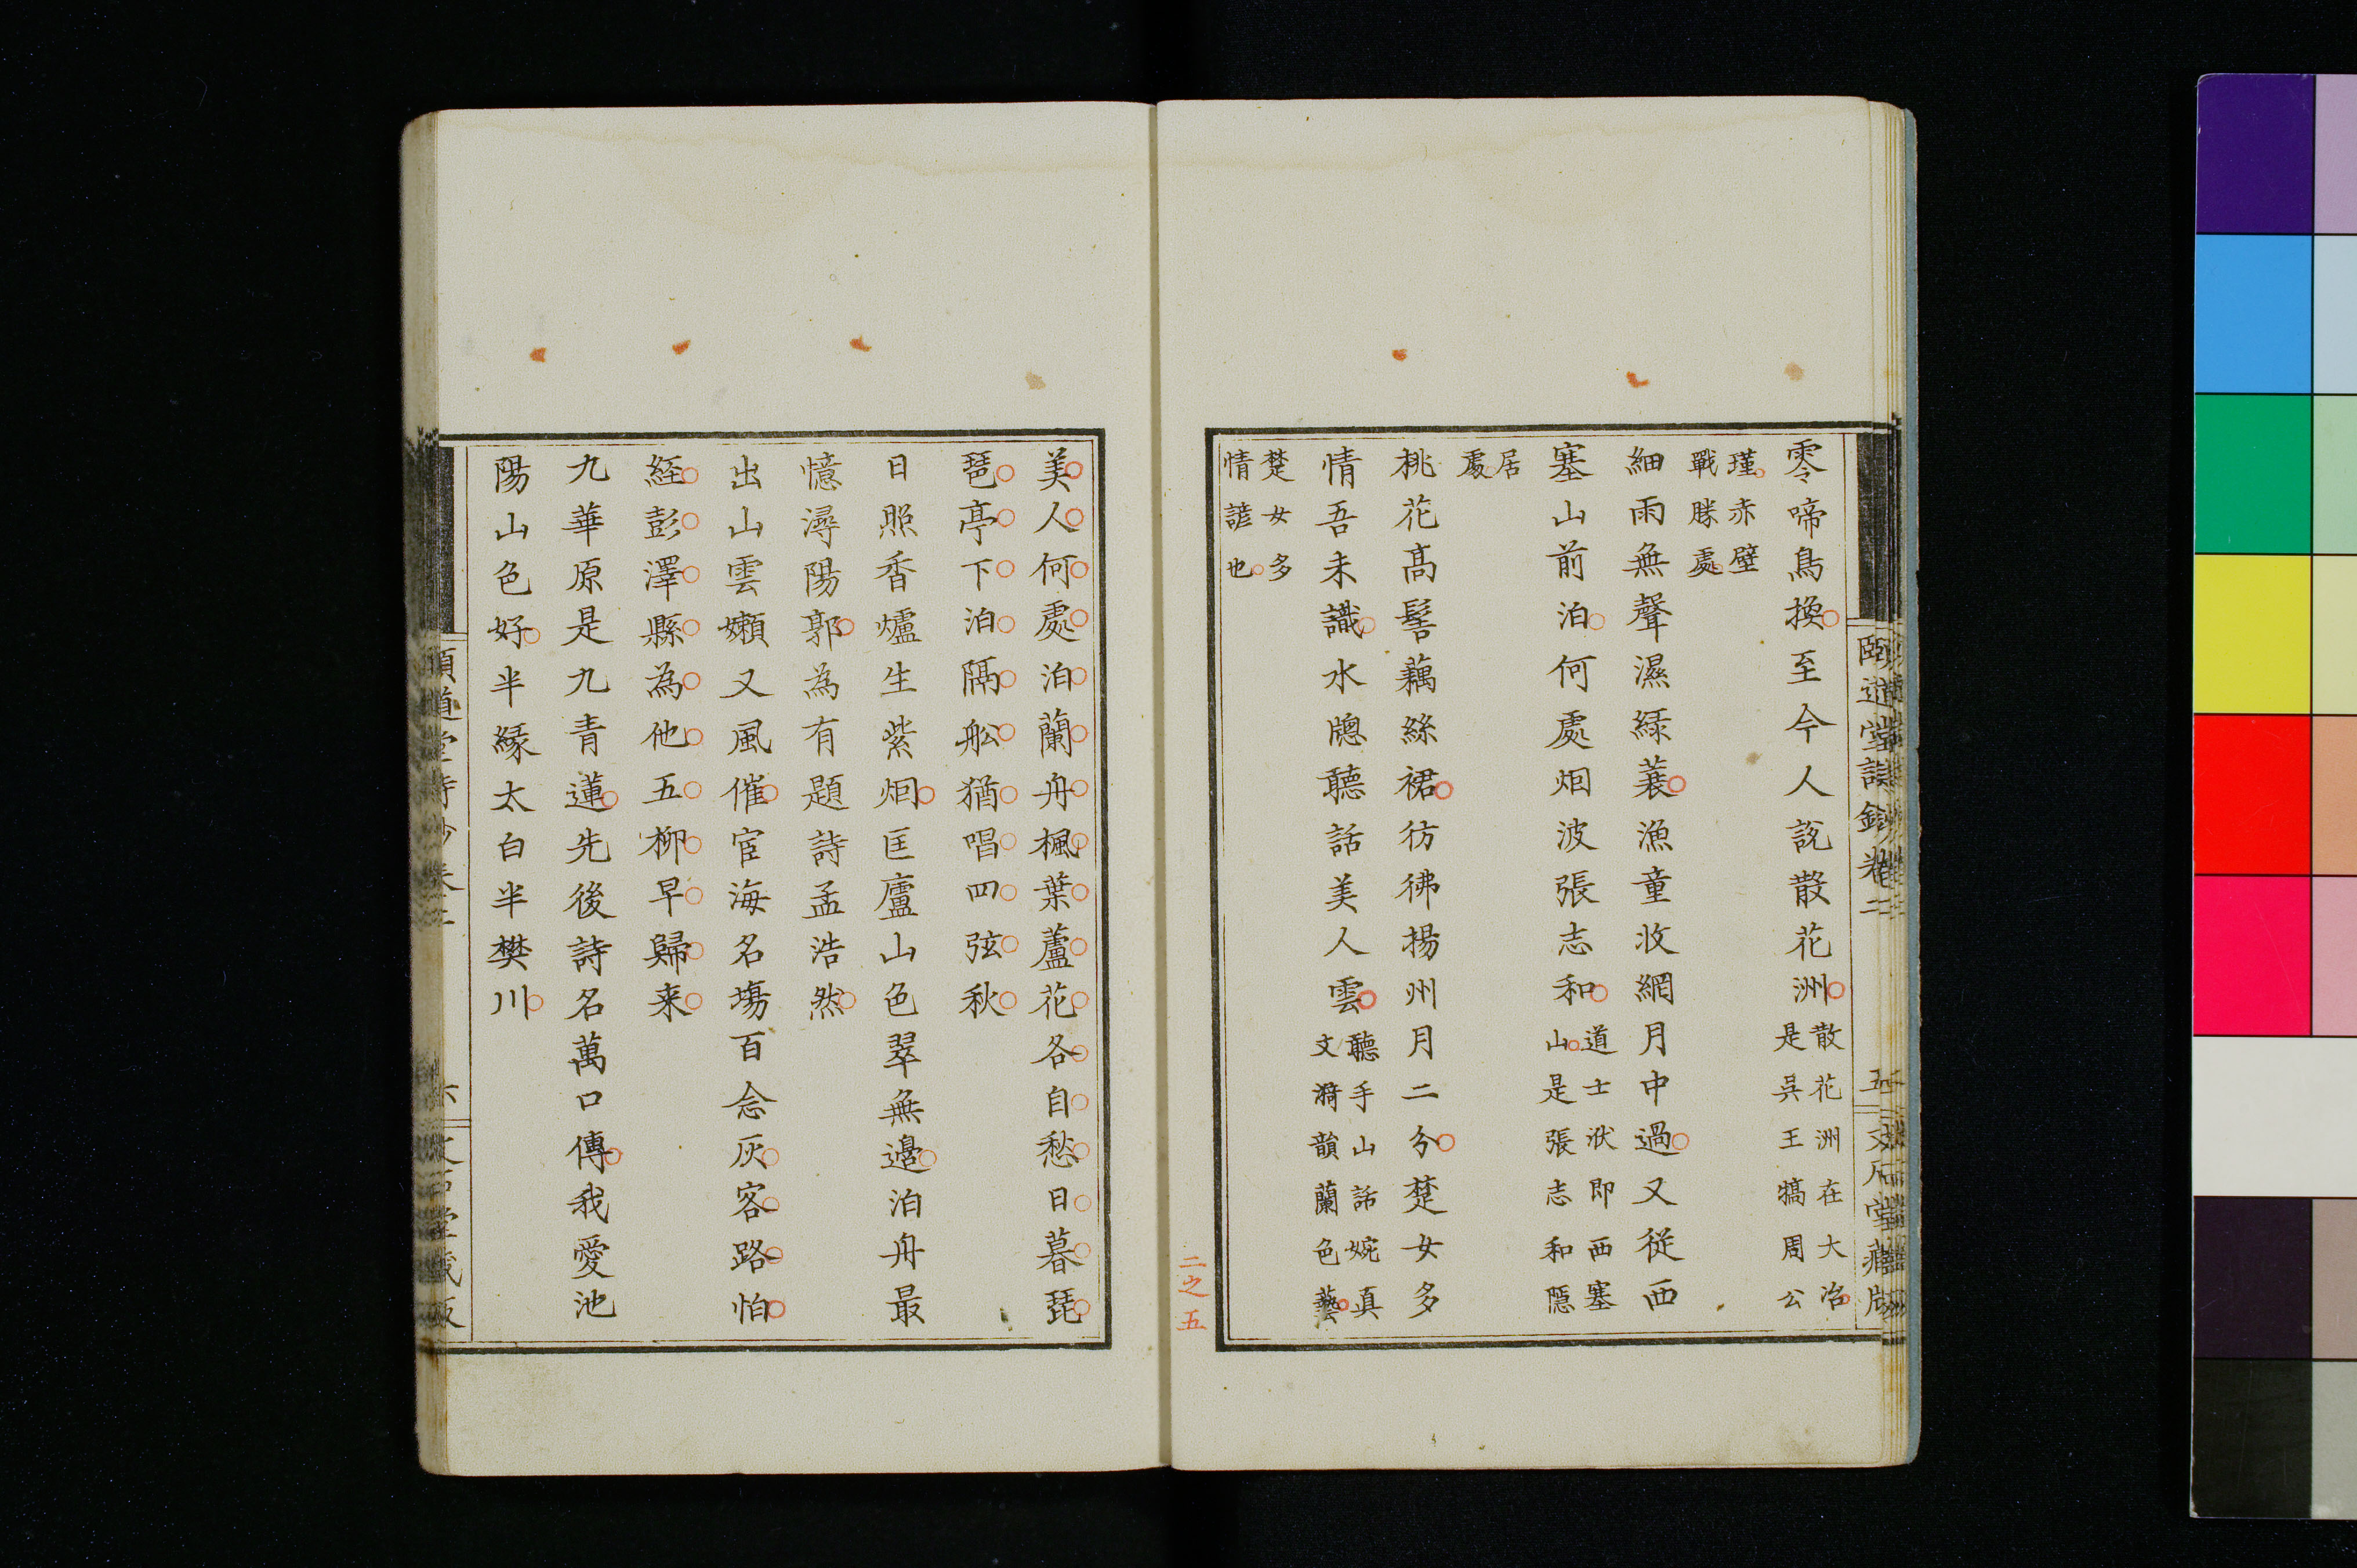 頤道堂詩鈔卷二
五
文石堂藏版
零啼鳥換至今人說散花洲散花洲在大冶
是吳王犒周公
瑾赤壁
戰勝處
細雨無聲濕緑蓑漁童收網月中過又從西
塞山前泊何處烟波張志和道士洑即西塞
山是張志和隱
居
處
桃花高髻藕絲裙彷彿揚州月二分楚女多
情吾未識水牕聽話美人雲聽手山話婉真
文漪韻蘭色藝
楚女多
情諺也
二之五
美人何處泊蘭舟楓葉蘆花各自愁日暮琵
琶亭下泊隔舩猶唱四弦秋
日照香爐生紫烟匡廬山色翠無邊泊舟最
憶潯陽郭為有題詩孟浩然
出山雲嬾又風催宦海名場百念灰客路怕
經彭澤縣為他五柳早歸来
九華原是九青蓮先後詩名萬口傳我愛池
陽山色好半緣太白半樊川
頤道堂詩鈔卷二
六
文石堂藏版